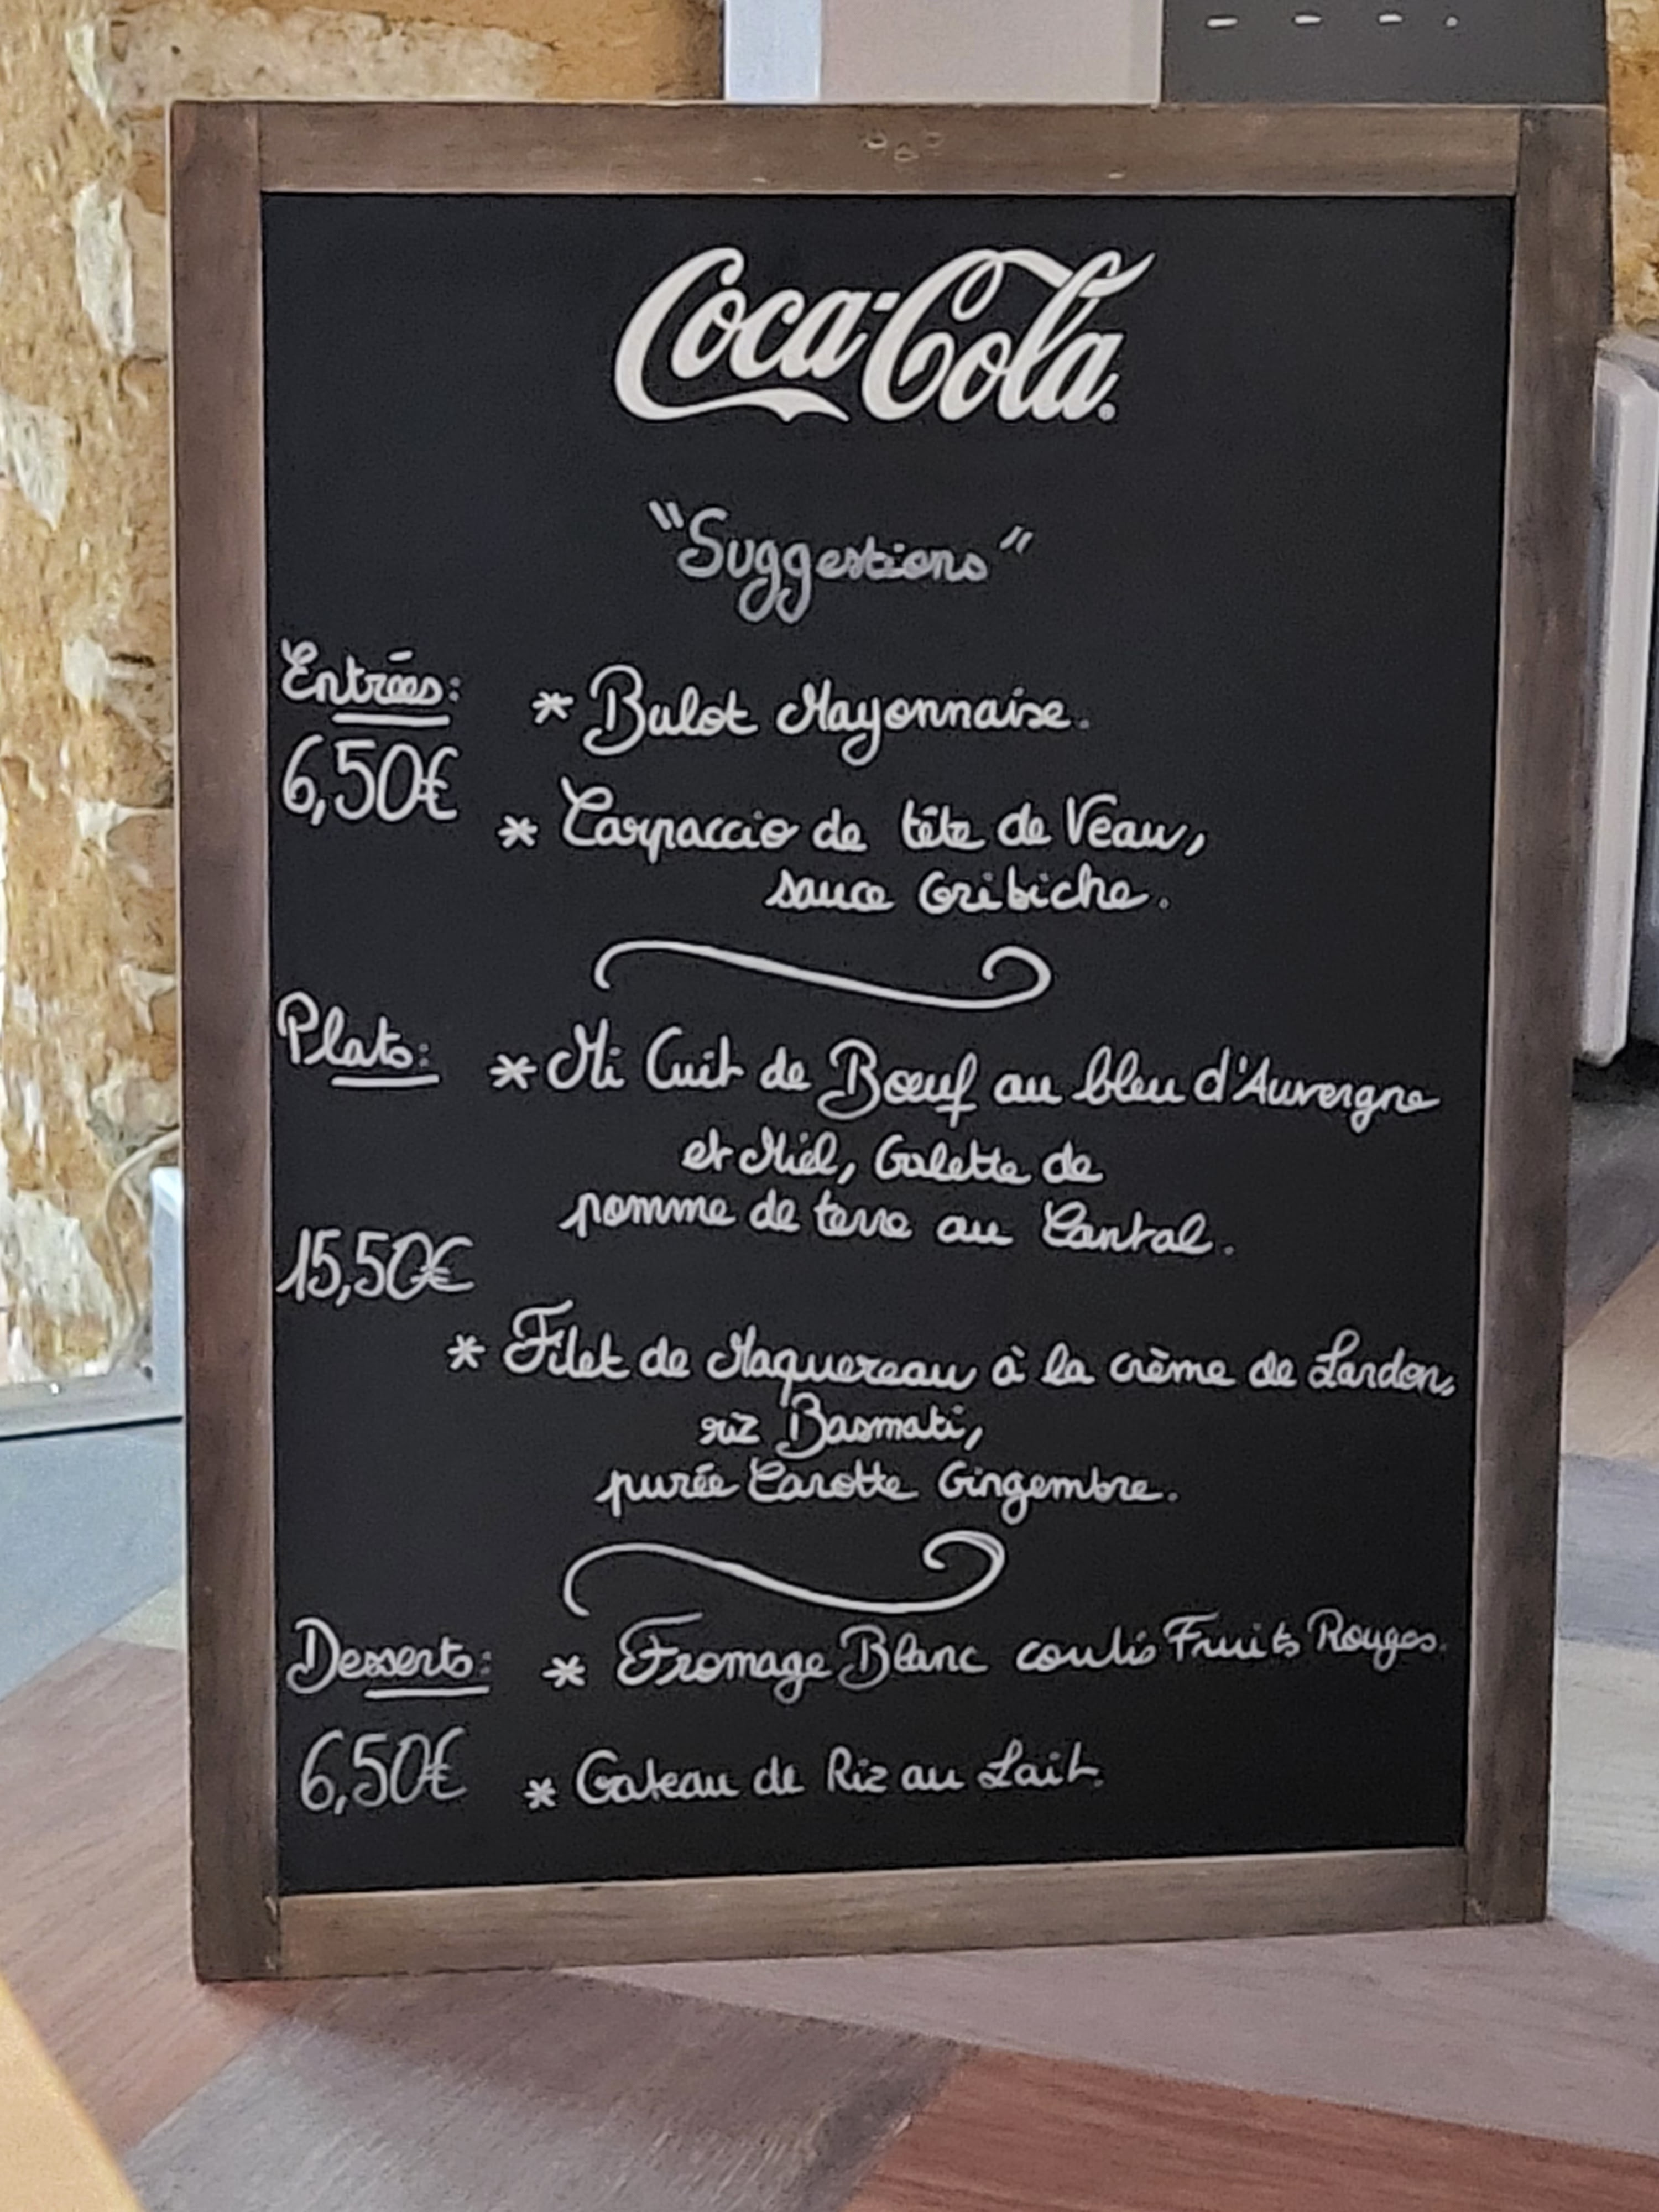 Coca-Cola
"Suggestions"
Entrées:
6,50€
* Bulot Mayonnaise.
* Carpaccio de tête de Veau,
sauce Gribiche.
Plats:
* Mi Cuit de Bœuf au bleu d'Auvergne
et Miel, Galette de
pomme de terre au Cantal.
15,50€
* Filet de Maquereau à la crème de Lardon,
riz Basmati,
purée Carotte Gingembre.
Desserts:
* Fromage Blanc coulis Fruits Rouges.
6,50€
* Gateau de Riz au Lait.